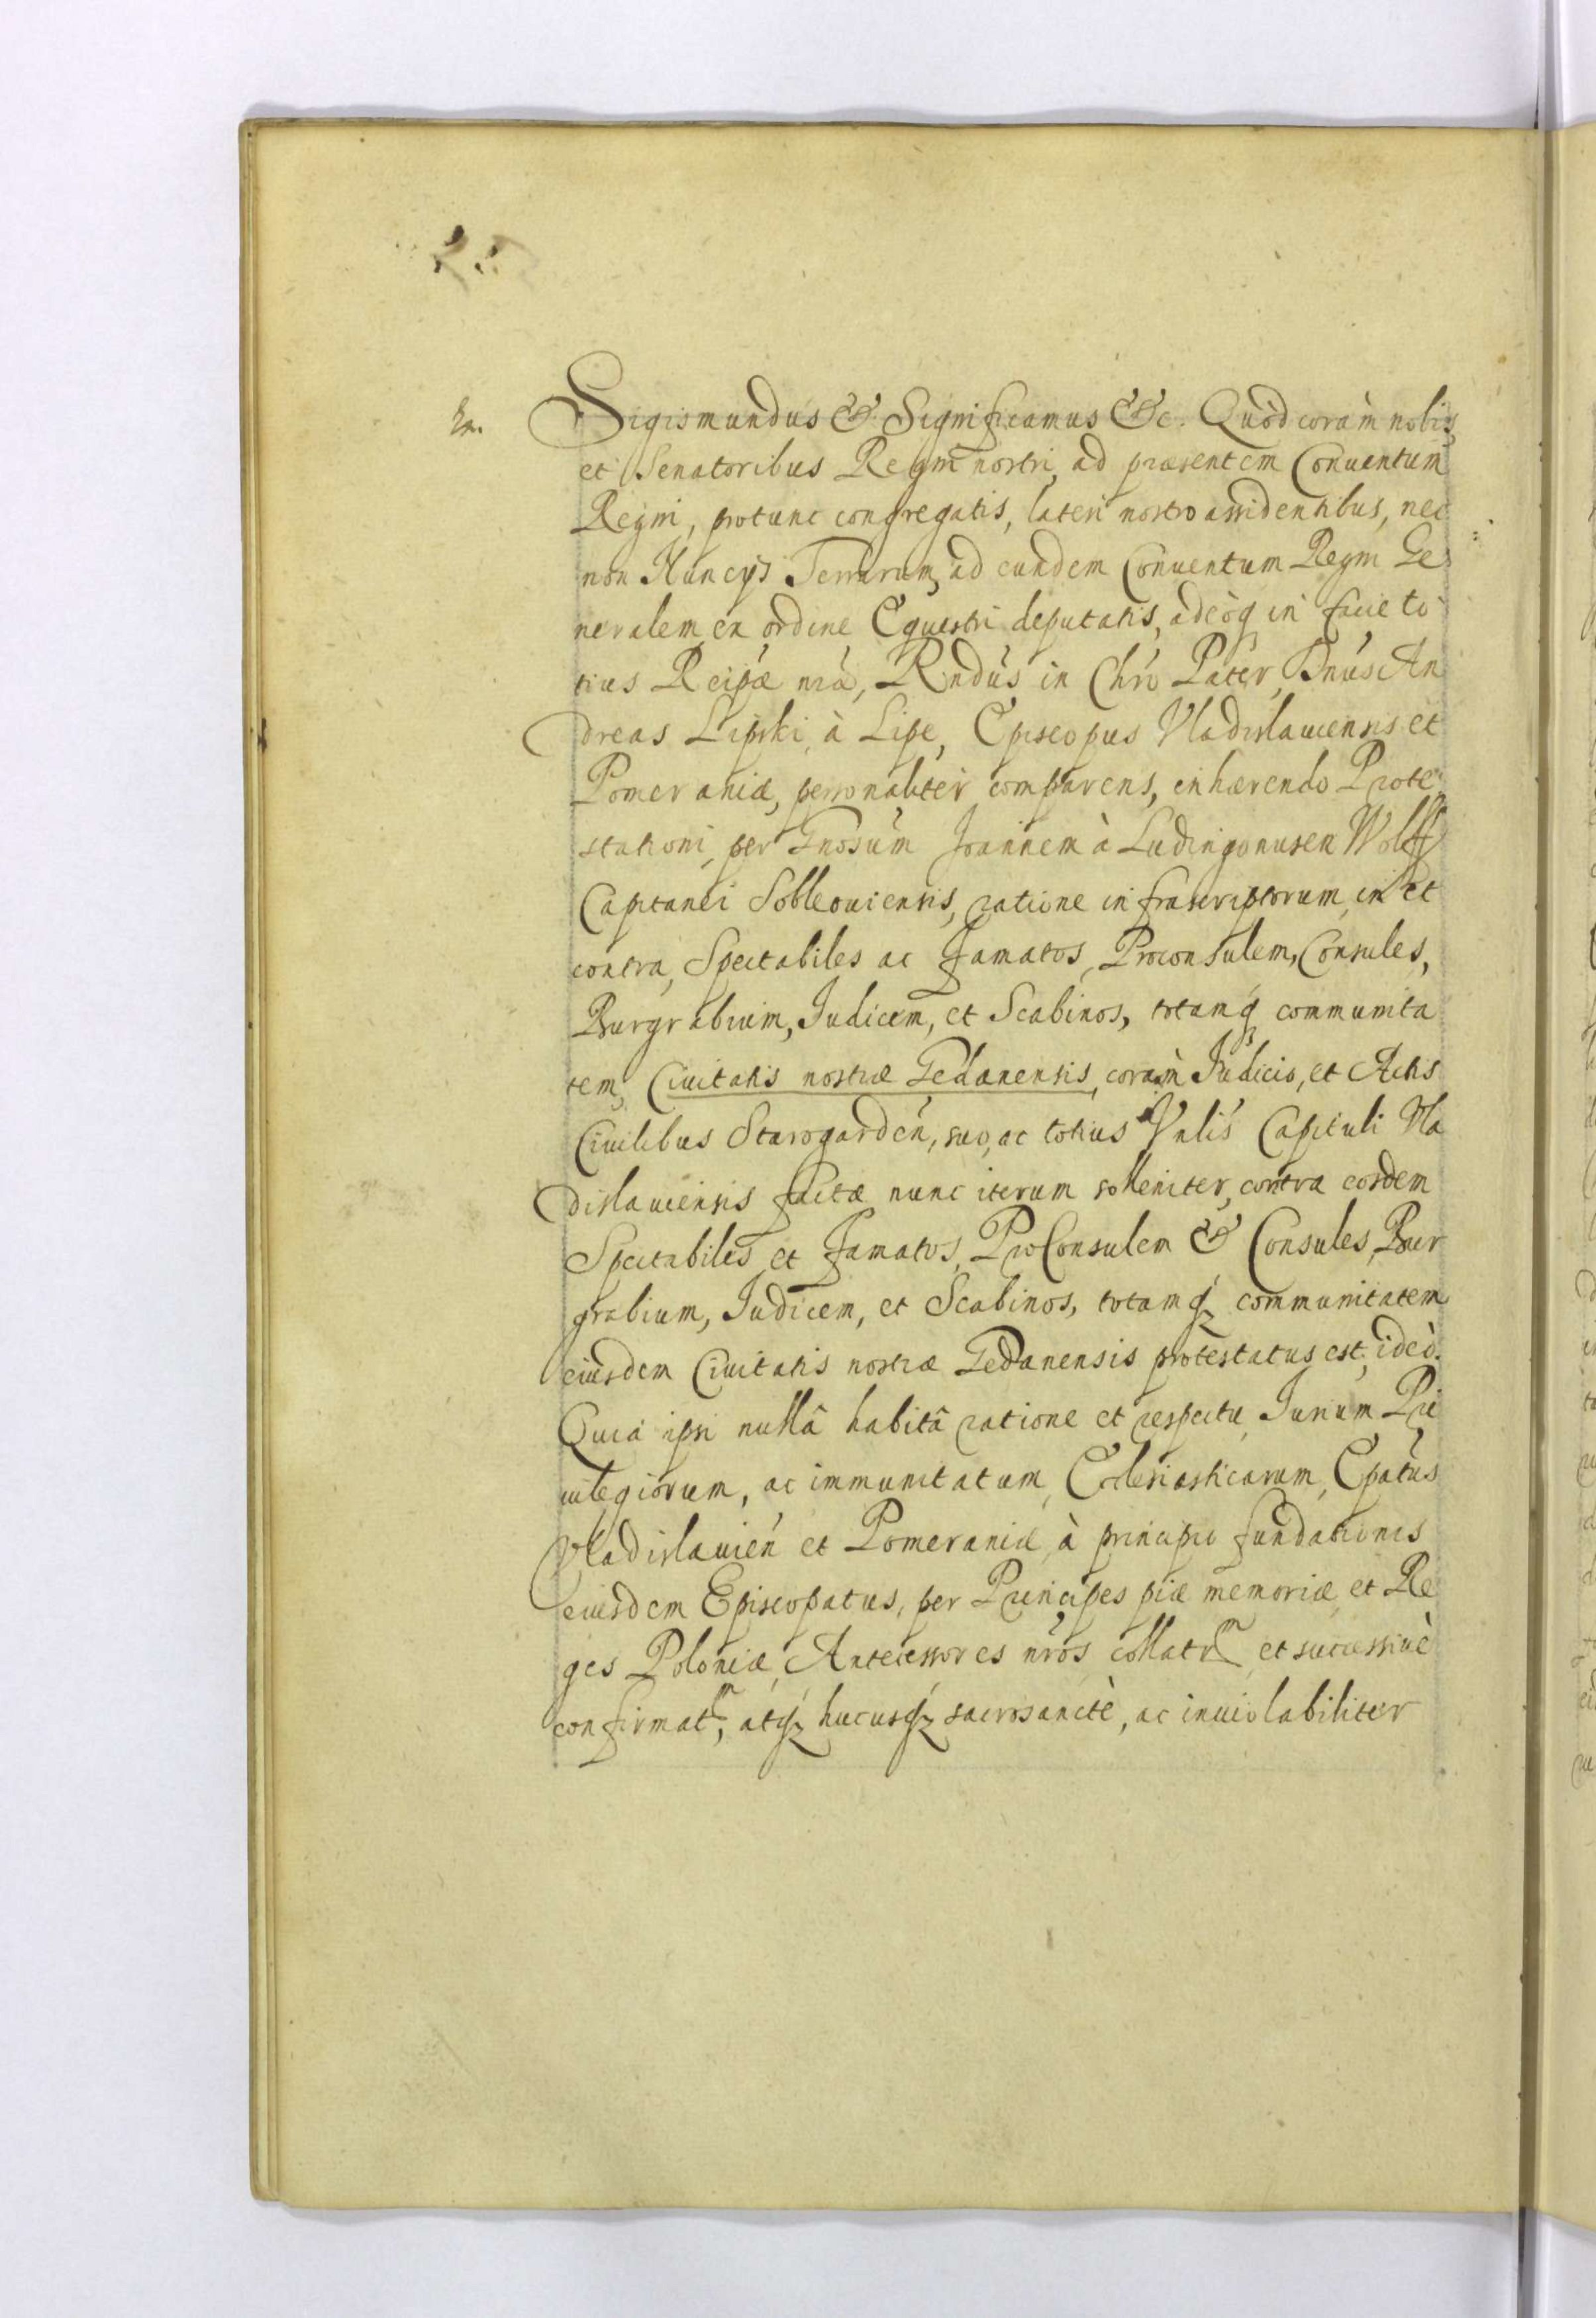 Sigismundus &. Significamus &c. Quòd coràm nobis,
et Senatoribus Regni nostri, ad præsentem Conuentum
Regni, protunc congregatis, lateri nostro assidentibus, nec
non Nuncijs Terrarum, ad eundem Conuentum Regni Ge
neralem, ex ordine Equestri deputatis, adeòq́ in facie to
tius Reipæ nrá, Rndús in Chrò Pater, Dnús An
dreas Lipski, à Lipe, Episcopus Vladislauiensis et
Pomeraniæ, personaliter comparens, inhærendo Prote
stationi, per Gnosúm Joannem à Ludingonusen Wolff
Capitanei Sobleouiensis, ratione infrascriptorum, in et
contra, Spectabiles ac Famatos, Proconsulem, Consules,
Burgrabium, Iudicem, et Scabinos, totamq́ communita
tem, Ciuitatis nostræ Gedanensis, coràm Iudicio, et Actis
Ciuilibus Starogardeń, suo, ac totius Vnlis Capituli Vla
dislauiensis factæ nunc iterum solleniter, contra eosdem
Spectabiles et Famatos, ProConsulem & Consules, Bur
grabium, Iudicem, et Scabinos, totamq́ communitatem
eiusdem Ciuitatis nostræ Gedanensis protestatus est, ideò.
Quia ipsi nullâ habitâ ratione et respectu, Iurium Pri
uilegiorum, ac immunitatum, Ecclesiasticarum, Epatús
Vladislauień et Pomeraniæ, à principio fundationis
eiusdem Episcopatus, per Principes piæ memoriæ, et Re
ges Poloniæ, Antecessores nros collatrm et successiuè
confirmatrm, atq́ hucusq́ sacrosanctè, ac inuiolabiliter